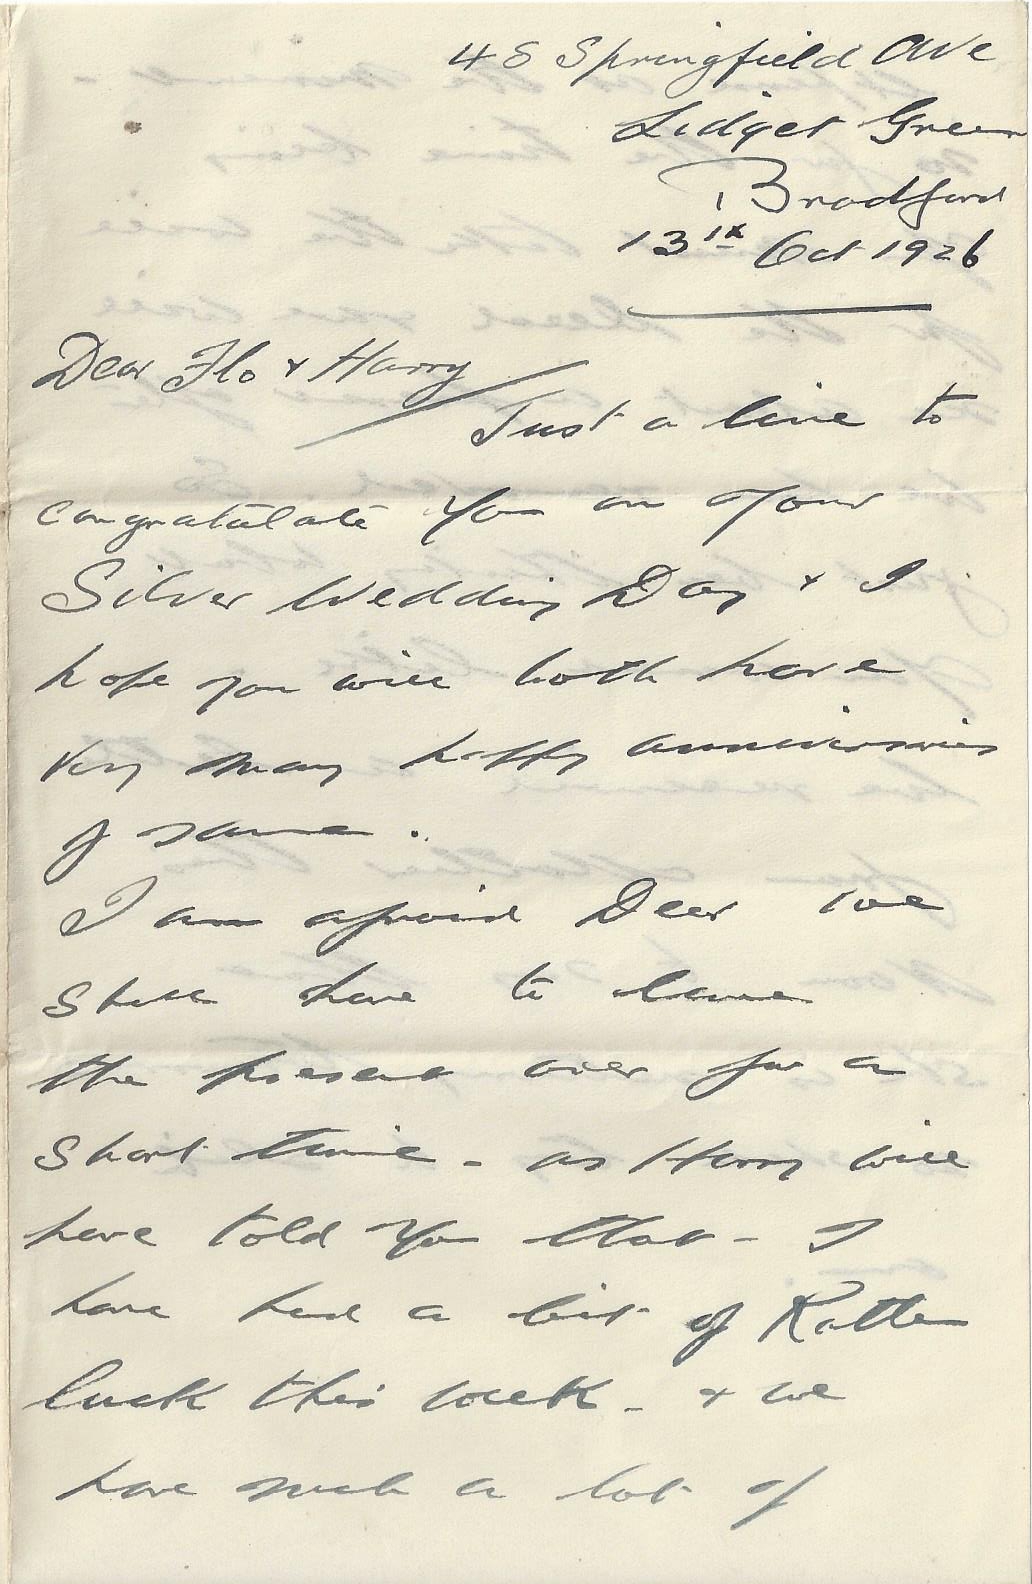 48 Springfield Ave
Lidget Green
Bradford
13th Oct 1926
Dear Flo & Harry
Just a line to
congratulate You on your
Silver Wedding Day & I
hope you will both have
very many happy anniversaries
of same.
I am afraid Dear we
shall have to leave
the present over for a
short time - as Harry will
have told You that - I
have had a bit of Rotten
luck this week - & we
have such a lot of